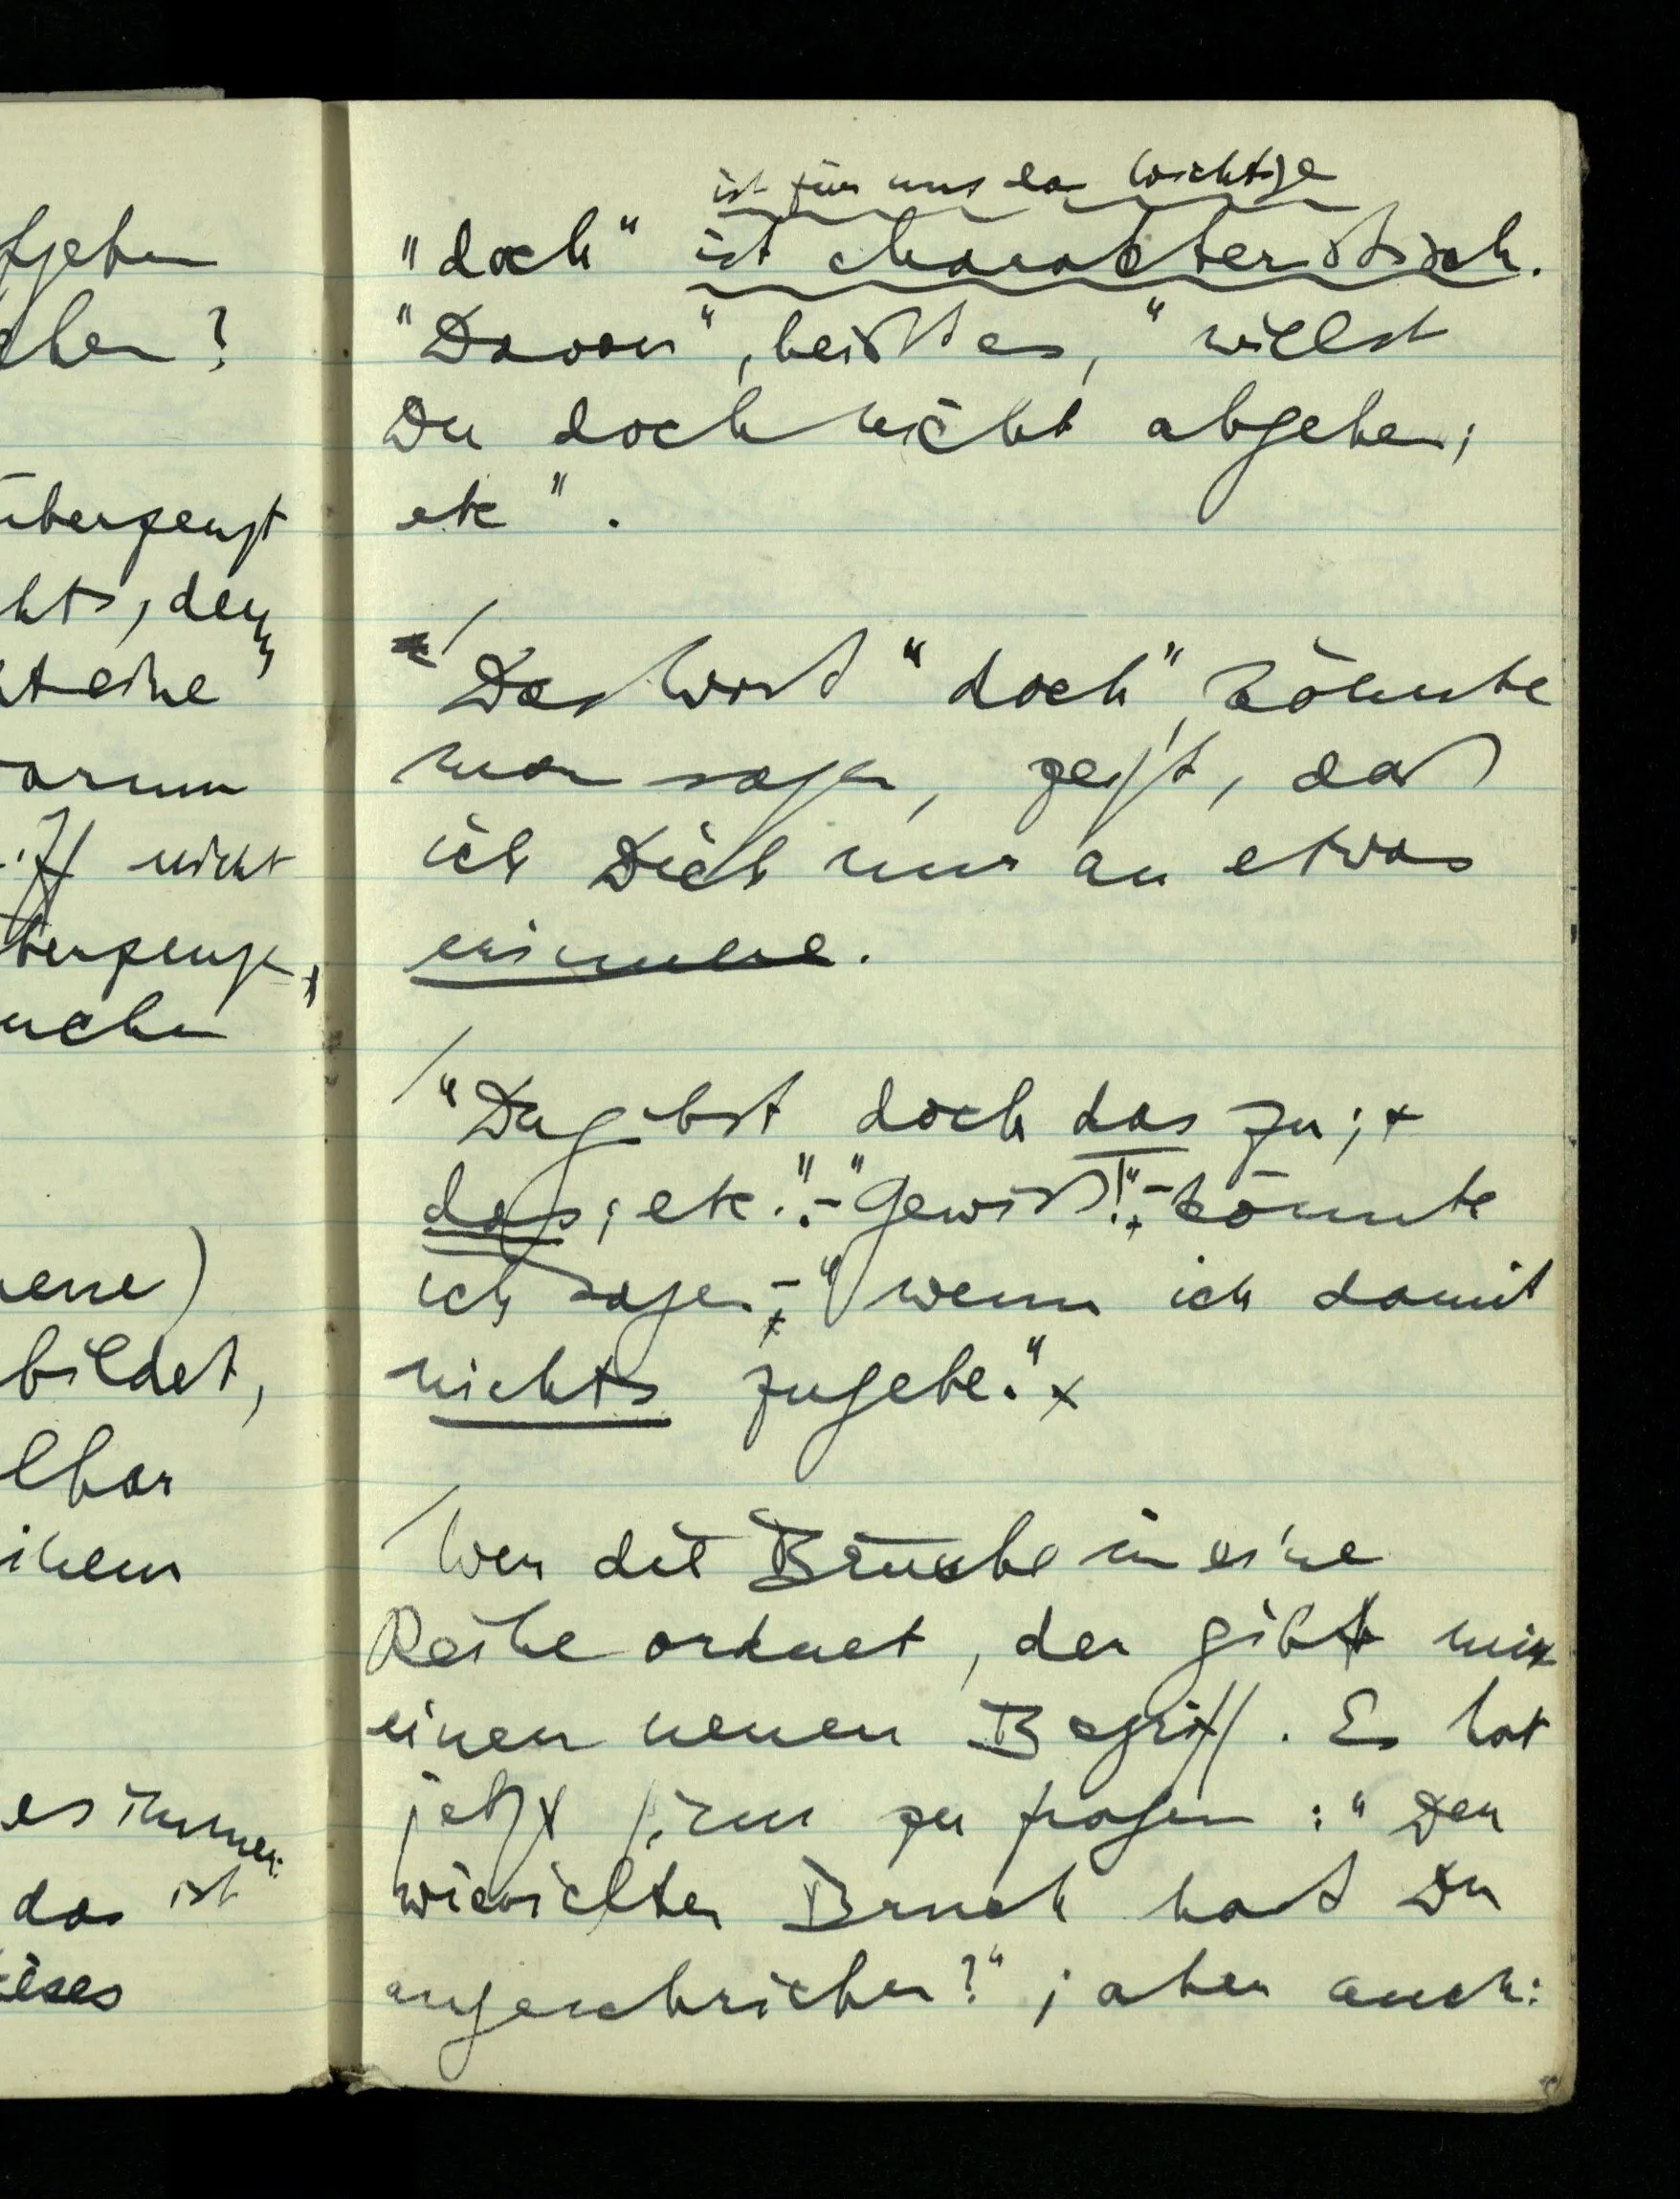 fgeben
chen?
überzeugt
hts, den
t eine"
arum
nicht
berzeuge,
uchen
ene)
bildet,
lbar
inem
es immer:
das ist
ises
ist für uns das Wichtige
"doch" ist charakteristisch.
"Davon", heißt es, "willst
Du doch nicht abgehen;
etc".
Das Wort "doch", könnte
man sagen, zeigt, daß
ich Dich nur an etwas
erinnere.
"Du gibst doch das zu;
das; etc." – "Gewiß!" – könnte
ich sagen – "wenn ich damit
nichts zugebe."
Wer die Brüche in eine
Reihe ordnet, der gibt mir
einen neuen Begriff. Es hat
jetzt Sinn zu fragen: "Den
wievielten Bruch hast Du
angeschrieben?"; aber auch: